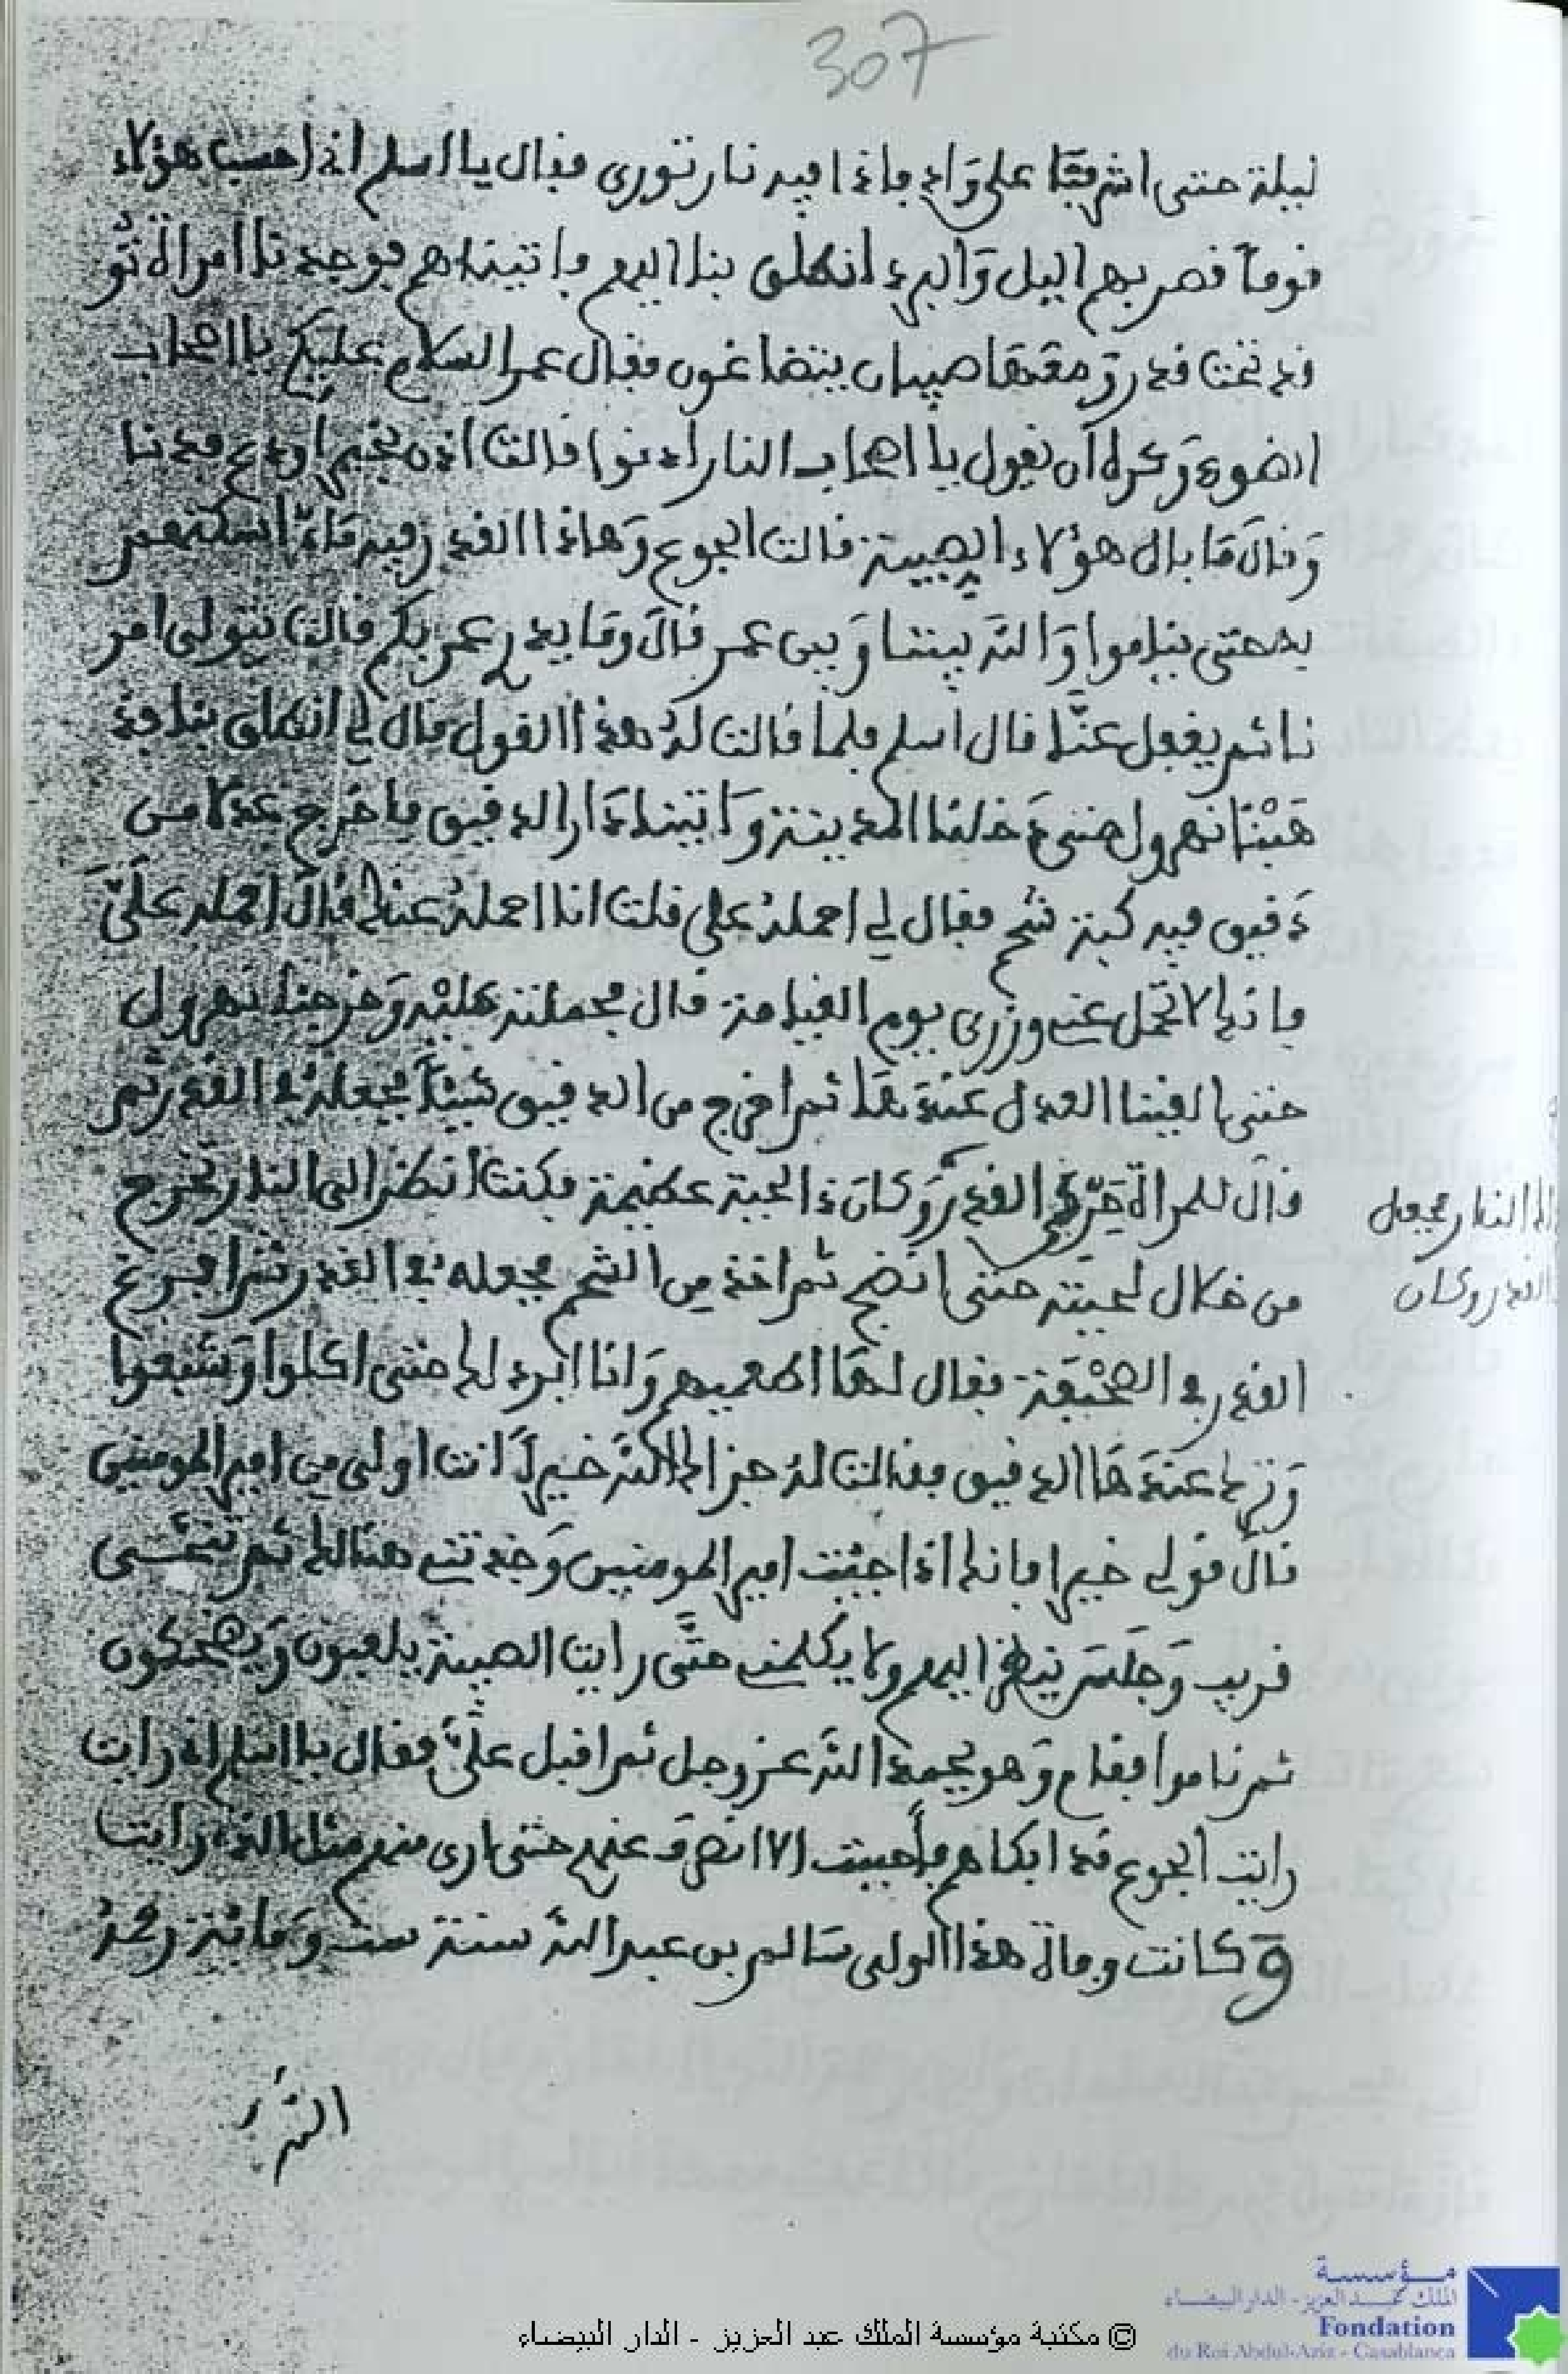 307
ليلة حتى اشرفنا على واد فاذا فيه نار تورى فقال يا اسلم اني احسب هؤلاء
قوما قصر بهم اليل والبرد انطلق بنا اليهم فاتيناهم فوجدنا امراة تو
قد تحت قدر ومعها صبيان يتضاغون فقال عمر السلام عليكم يا اصحاب
الضوء وكره ان يقول يا اصحاب النار ادنوا قالت ادن بخير اودع فدنا
وقال ما بال هؤلاء الصبية قالت الجوع وهاذا القدر فيه ماء اسكتهم
به حتى يناموا والله بيننا وبين عمر قال وما يدر عمر بكم قالت يتولى امر
نا ثم يغفل عنا قال اسلم فلما قالت له هذا القول قال لي انطلق بنا
فجئنا نهرول حتى دخلنا المدينة واتينا دار الدقيق فاخرج عدلا من
دقيق فيه كبة شحم فقال لي احمله علي قلت انا احمله عنك قال احمله علي
فانك لا تحمل عني وزري يوم القيامة قال فحملته عليه وخرجنا نهرول
حتى القينا العدل عندها ثم اخرج من الدقيق شيئا فجعله في القدر ثم
قال للمراة القدر وكان ذا لحية عظيمة فكنت انظر الى النار تخرج
الى النار فجعل
القدر وكان
من خلال لحيته حتى انضج ثم اخذ من الشحم فجعله في القدر ثم افرغ
القدر في الصحفة فقال لها اطعميهم وانا ابرد لك حتى اكلوا وشبعوا
وترك عندها الدقيق فقالت له جزاك الله خيرا انت اولى من امير المومنين
قال قولي خيرا فانك اذا جئت امير المومنين وجدتني هنالك ثم تنحى
قريب وجلس ينظر اليهم ولا يكلمني حتى رايت الصبية يلعبون ويضحكون
ثم ناموا فقام وهو يحمد الله عز وجل ثم اقبل علي فقال يا اسلم اني رايت
رايت الجوع قد ابكاهم فاحببت الا انصرف عنهم حتى ارى منهم مثل الذي رايت
وكانت وفاة هذا الولى سالم بن عبد الله سنة ست ومائة رحمه
الله
© مكتبة مؤسسة الملك عبد العزيز - الدار البيضاء
مؤسسة
الملك عبد العزيز - الدار البيضاء
Fondation
du Roi Abdul-Aziz - Casablanca